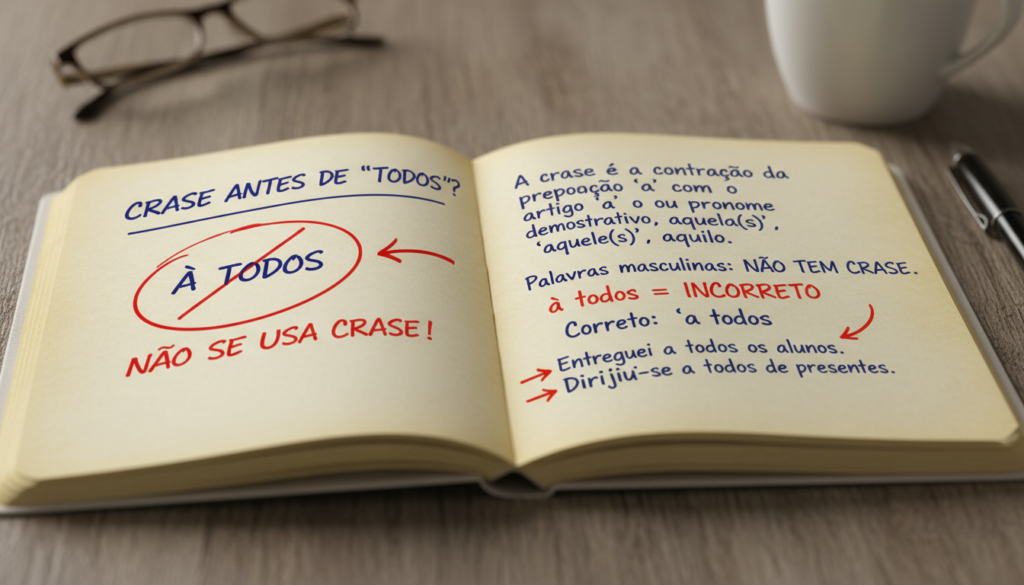 CRASE ANTES DE "TODOS"?
À TODOS
NÃO SE USA CRASE!
A crase é a contração da
prepoação 'a' com o
artigo 'a' o ou pronome
demostrativo, aquela(s)',
'aquele(s)', aquilo.
Palavras masculinas: NÃO TEM CRASE.
à todos = INCORRETO
Correto: 'a todos
Entreguei a todos os alunos.
Dirijiu-se a todos de presentes.